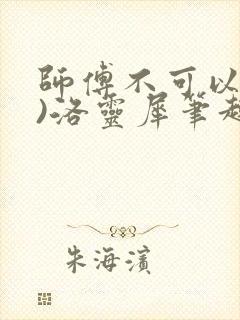 師傅不可以
)洛靈犀筆趣
朱海濱